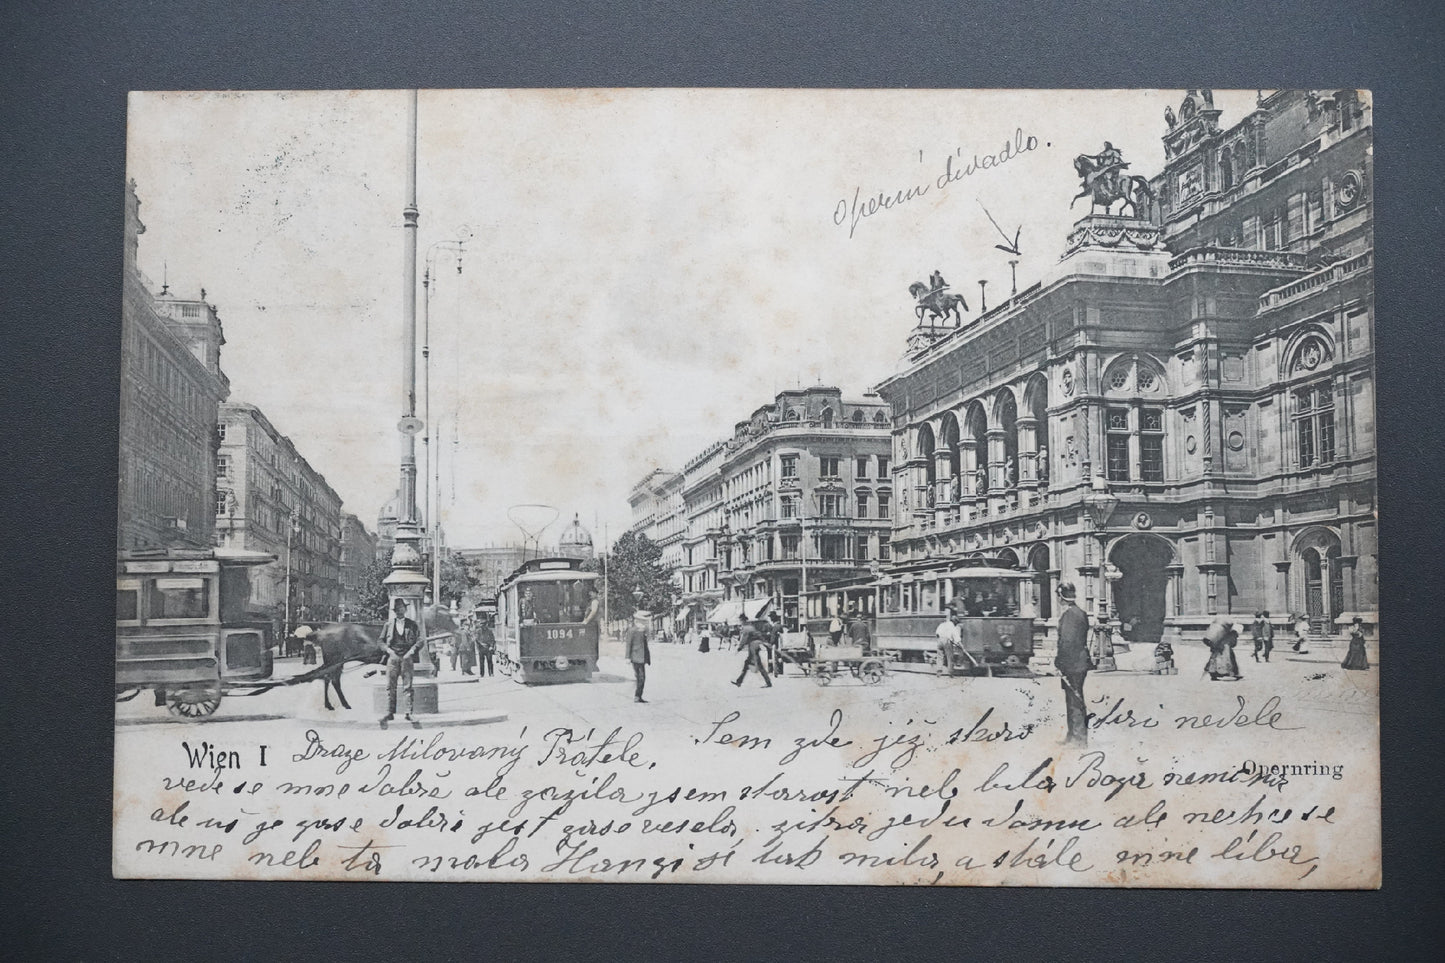 Operní divadlo.
1094
Wien I Draze Milovaný Přátele, Sem zde již skoro čtiri nedele
Opernring
vede se mne dobře ale zažila jsem starost neb bula Boža nemicna
ale už je zase dobři jest zase vesela, zitra jedu domu ale nechce se
mne neb ta mala Hanzi sí tak mila, a stále mne líba,